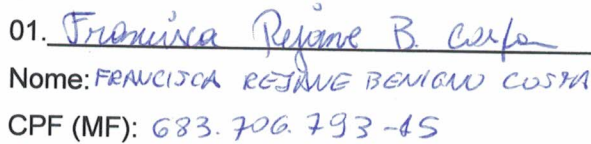 01. Francisca Rejane B. Costa
Nome: FRANCISCA REJANE BENIGNO COSTA
CPF (MF): 683.706.793-15